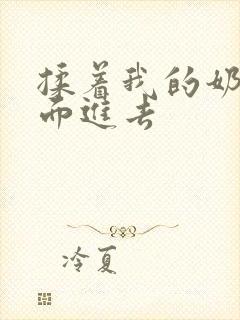 揉着我的奶
而進去
冷夏